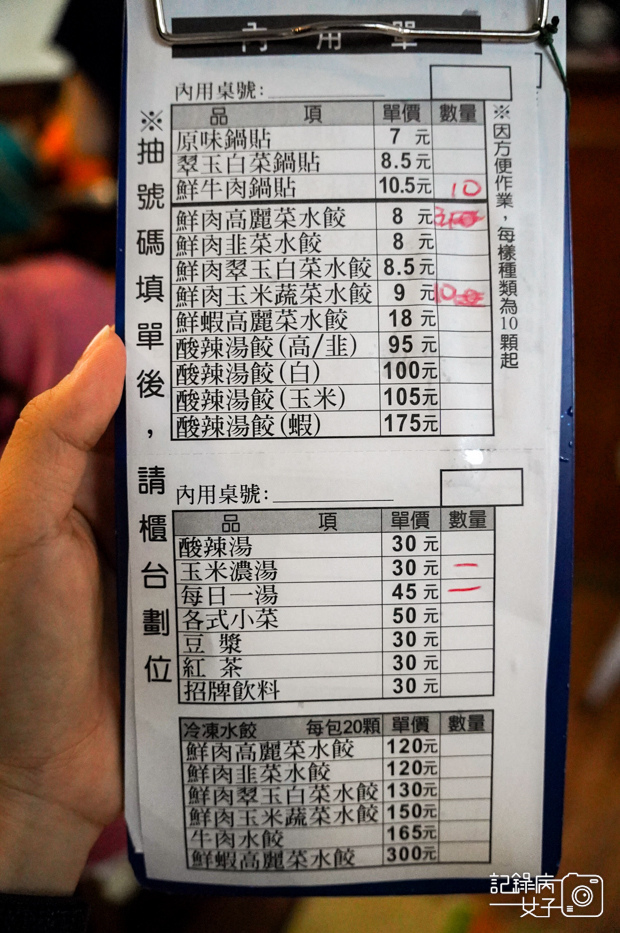 內用單
內用桌號：
※抽號碼填單後，請櫃台劃位
品 項 單價 數量
原味鍋貼 7 元
翠玉白菜鍋貼 8.5元
鮮牛肉鍋貼 10.5元 10
鮮肉高麗菜水餃 8 元
鮮肉韭菜水餃 8 元
鮮肉翠玉白菜水餃 8.5元
鮮肉玉米蔬菜水餃 9 元 10
鮮蝦高麗菜水餃 18 元
酸辣湯餃(高/韭) 95 元
酸辣湯餃(白) 100元
酸辣湯餃(玉米) 105元
酸辣湯餃(蝦) 175元
※因方便作業，每樣種類為10顆起
內用桌號：
品 項 單價 數量
酸辣湯 30 元
玉米濃湯 30 元 一
每日一湯 45 元 一
各式小菜 50 元
豆 漿 30 元
紅 茶 30 元
招牌飲料 30 元
冷凍水餃 每包20顆 單價 數量
鮮肉高麗菜水餃 120元
鮮肉韭菜水餃 120元
鮮肉翠玉白菜水餃 130元
鮮肉玉米蔬菜水餃 150元
牛肉水餃 165元
鮮蝦高麗菜水餃 300元
記錄病
一女子